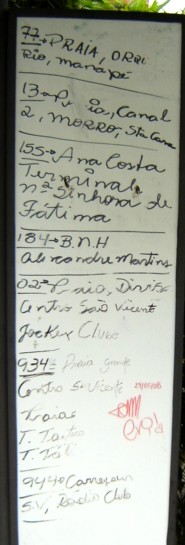 77→PRAIA, ORQUI
Rio, manapé
13→P ia, Canal
2, MORRO, Sta Cana
155→Ana Costa
Terminal
nª Sinhora de
Fátima
184→B.N.H
alexandre Martins
02→P aia, Divisa
Centro São Vicente
Jockey Clube
934= Praia grande
Centro S. Vicente
Praias
T. Ta
T. Tá
944→Carrefour
S.V, Rádio Club